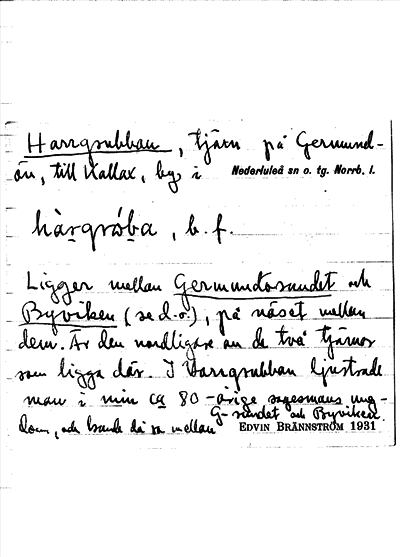 Harrgrubban, tjärn på Germund-
ön, till Kallax, by i Nederluleå sn o. tg. Norrb. l.
hàrgrɷ́ba, b. f.
Ligger mellan Germundösundet och
Byviken (se d. o.), på näset mellan
dem. Är den nordligare av de två tjärnar
som ligga där. I Harrgrubban ljustrade
man i min ca 80-årige sagesmans ung-
dom, och kunde då ro mellan G-sundet och Byviken.
EDVIN BRÄNNSTRÖM 1931